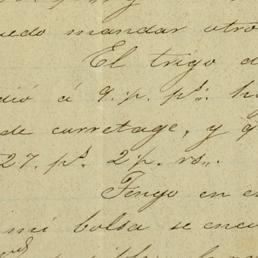 uedo mandar otro
El trigo d
dió á 9. p. ps. h
de carretage, y q
27. ps. 2 p. rs.
Tengo en e
mi bolsa se encu